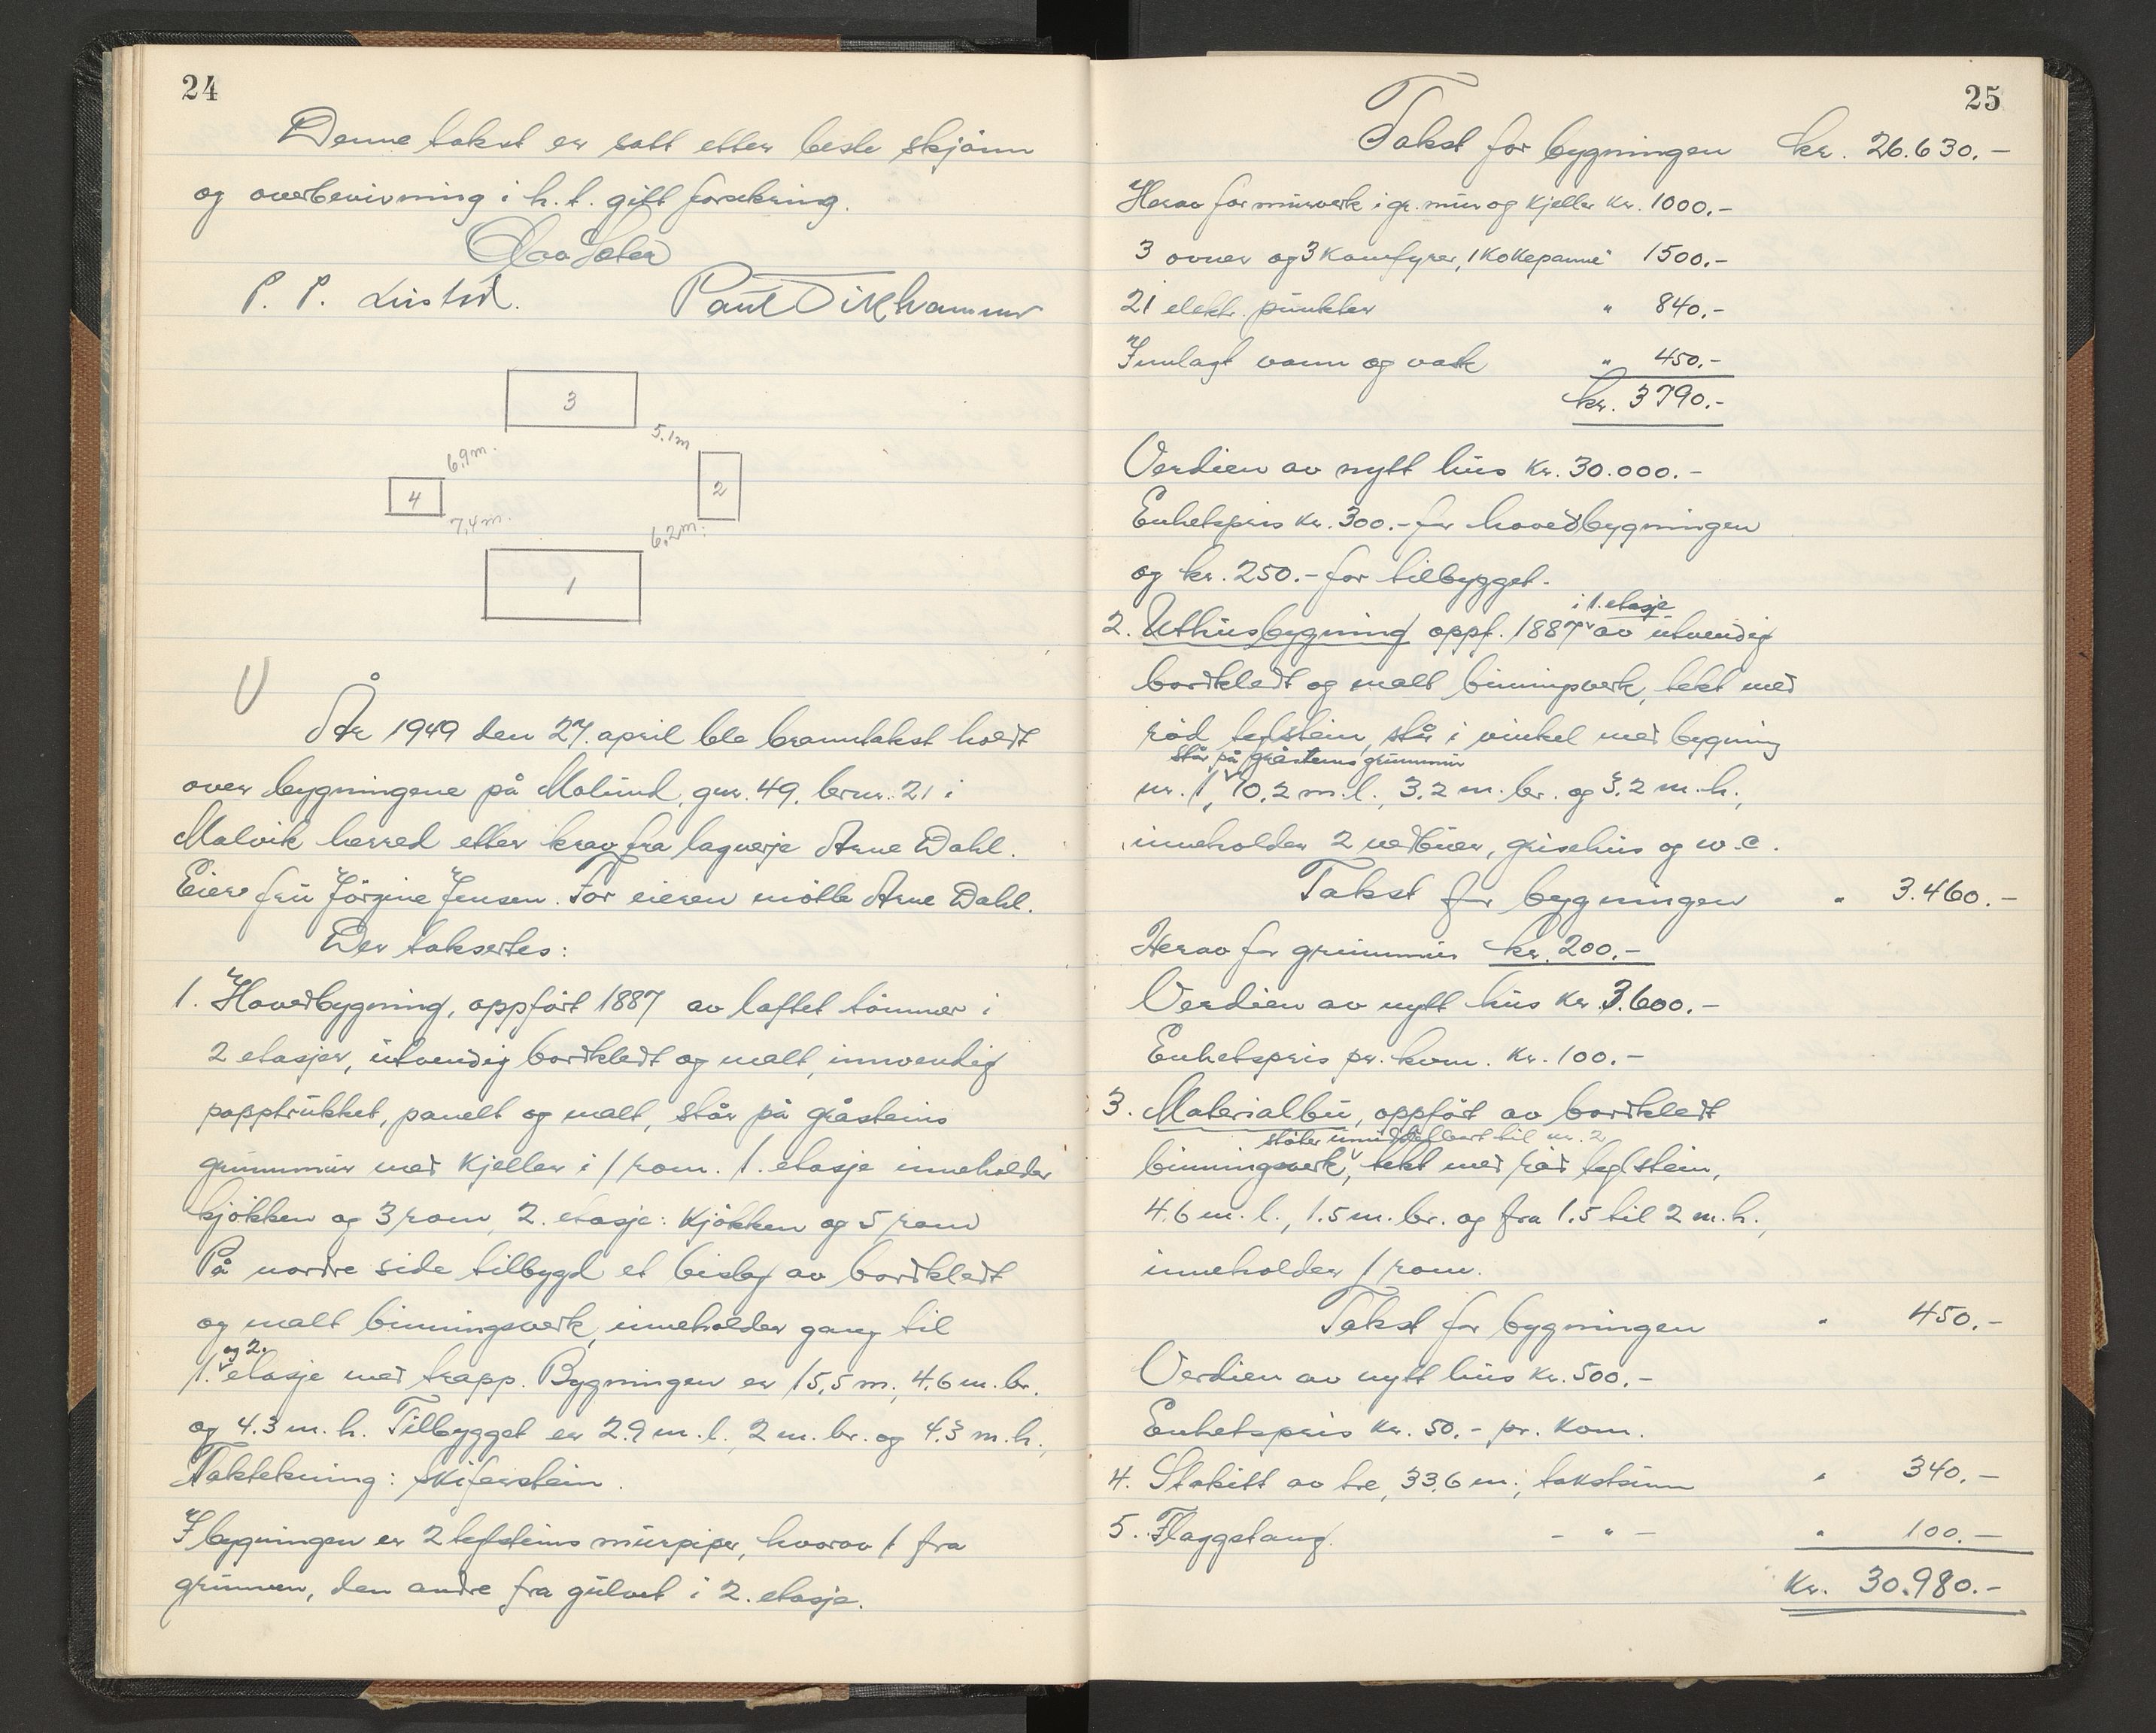 24
Denne takst er satt etter beste skjönn
og overbevisning i h. t. gitt forsikring.
P. P. Lusted. Paul Dirkhammer
3
5,1 m
6,9 m.
4
2
7,4 m.
6,2 m.
1
År 1949 den 27. april ble branntakst holdt
over bygningene på Molund, gnr. 49, brnr. 21 i
Malvik herred etter krav fra lagverje Arne Dahl.
Eier fru Jörgine Jensen. For eieren mötte Arne Dahl.
Der taksertes:
1. Hovedbygning, oppfört 1887 av laftet tömmer i
2 etasjer, utvendig bordkledt og malt, innvendig
papptrukket, panelt og malt, står på gråsteins
grunnmur med kjeller i 1 rom. 1. etasje inneholder
kjökken og 3 rom, 2. etasje: kjökken og 5 rom
På nordre side tilbygd et bislag av bordkledt
og malt binningsverk, inneholder gang til
1. og 2. etasje med trapp. Bygningen er 15,5 m., 4.6 m. br.
og 4.3 m. h. Tilbygget er 2.9 m. l. 2 m. br. og 4.3 m. h.,
Taktekning: skiferstein.
I bygningen er 2 teglsteins murpiper, hvorav 1 fra
grunnen, den andre fra gulvet i 2. etasje.
25
Takst for bygningen kr. 26.630.-
Herav for murverk i gr. mur og kjeller kr. 1000.-
3 ovner og 3 komfyrer, 1 kokepanne " 1500.-
21 elektr. punkter " 840.-
Innlagt vann og vask " 450.-
kr. 3790.-
Verdien av nytt hus kr. 30.000.-
Enhetspris kr. 300.- for hovedbygningen
og kr. 250.- for tilbygget.
2. Uthusbygning oppf. 1887 i 1. etasje av utvendig
bordkledt og malt binningsverk, tekt med
röd teglstein, står i vinkel med bygning
nr. 1, står på gråsteins grunnmur 10.2 m. l., 3.2 m. br. og 3.2 m. h.,
inneholder 2 vedbuer, grisehus og w.c.
Takst for bygningen " 3.460.-
Herav for grunnmur kr. 200.-
Verdien av nytt hus kr. 3.600.-
Enhetspris pr. kvm. kr. 100.-
3. Materialbu, oppfört av bordkledt
binningsverk, stöter umiddelbart til nr. 2 tekt med röd teglstein,
4.6 m. l., 1.5 m. br. og fra 1.5 til 2 m. h.,
inneholder 1 rom.
Takst for bygningen " 450.-
Verdien av nytt hus kr. 500.-
Enhetspris kr. 50.- pr. kvm.
4. Stakitt av tre, 33,6 m., takstsum " 340.-
5. Flaggstang. - " - " 100.-
Kr. 30.980.-